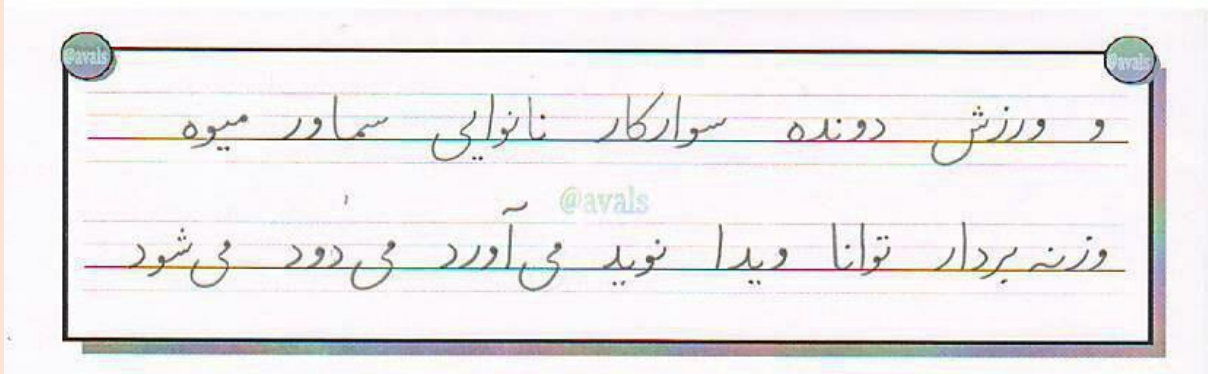 @avals @avals
و ورزش دونده سوارکار نانوایی سماور میوه
@avals
وزنه بردار توانا ویدا نوید می‌آورد می‌دود می‌شود